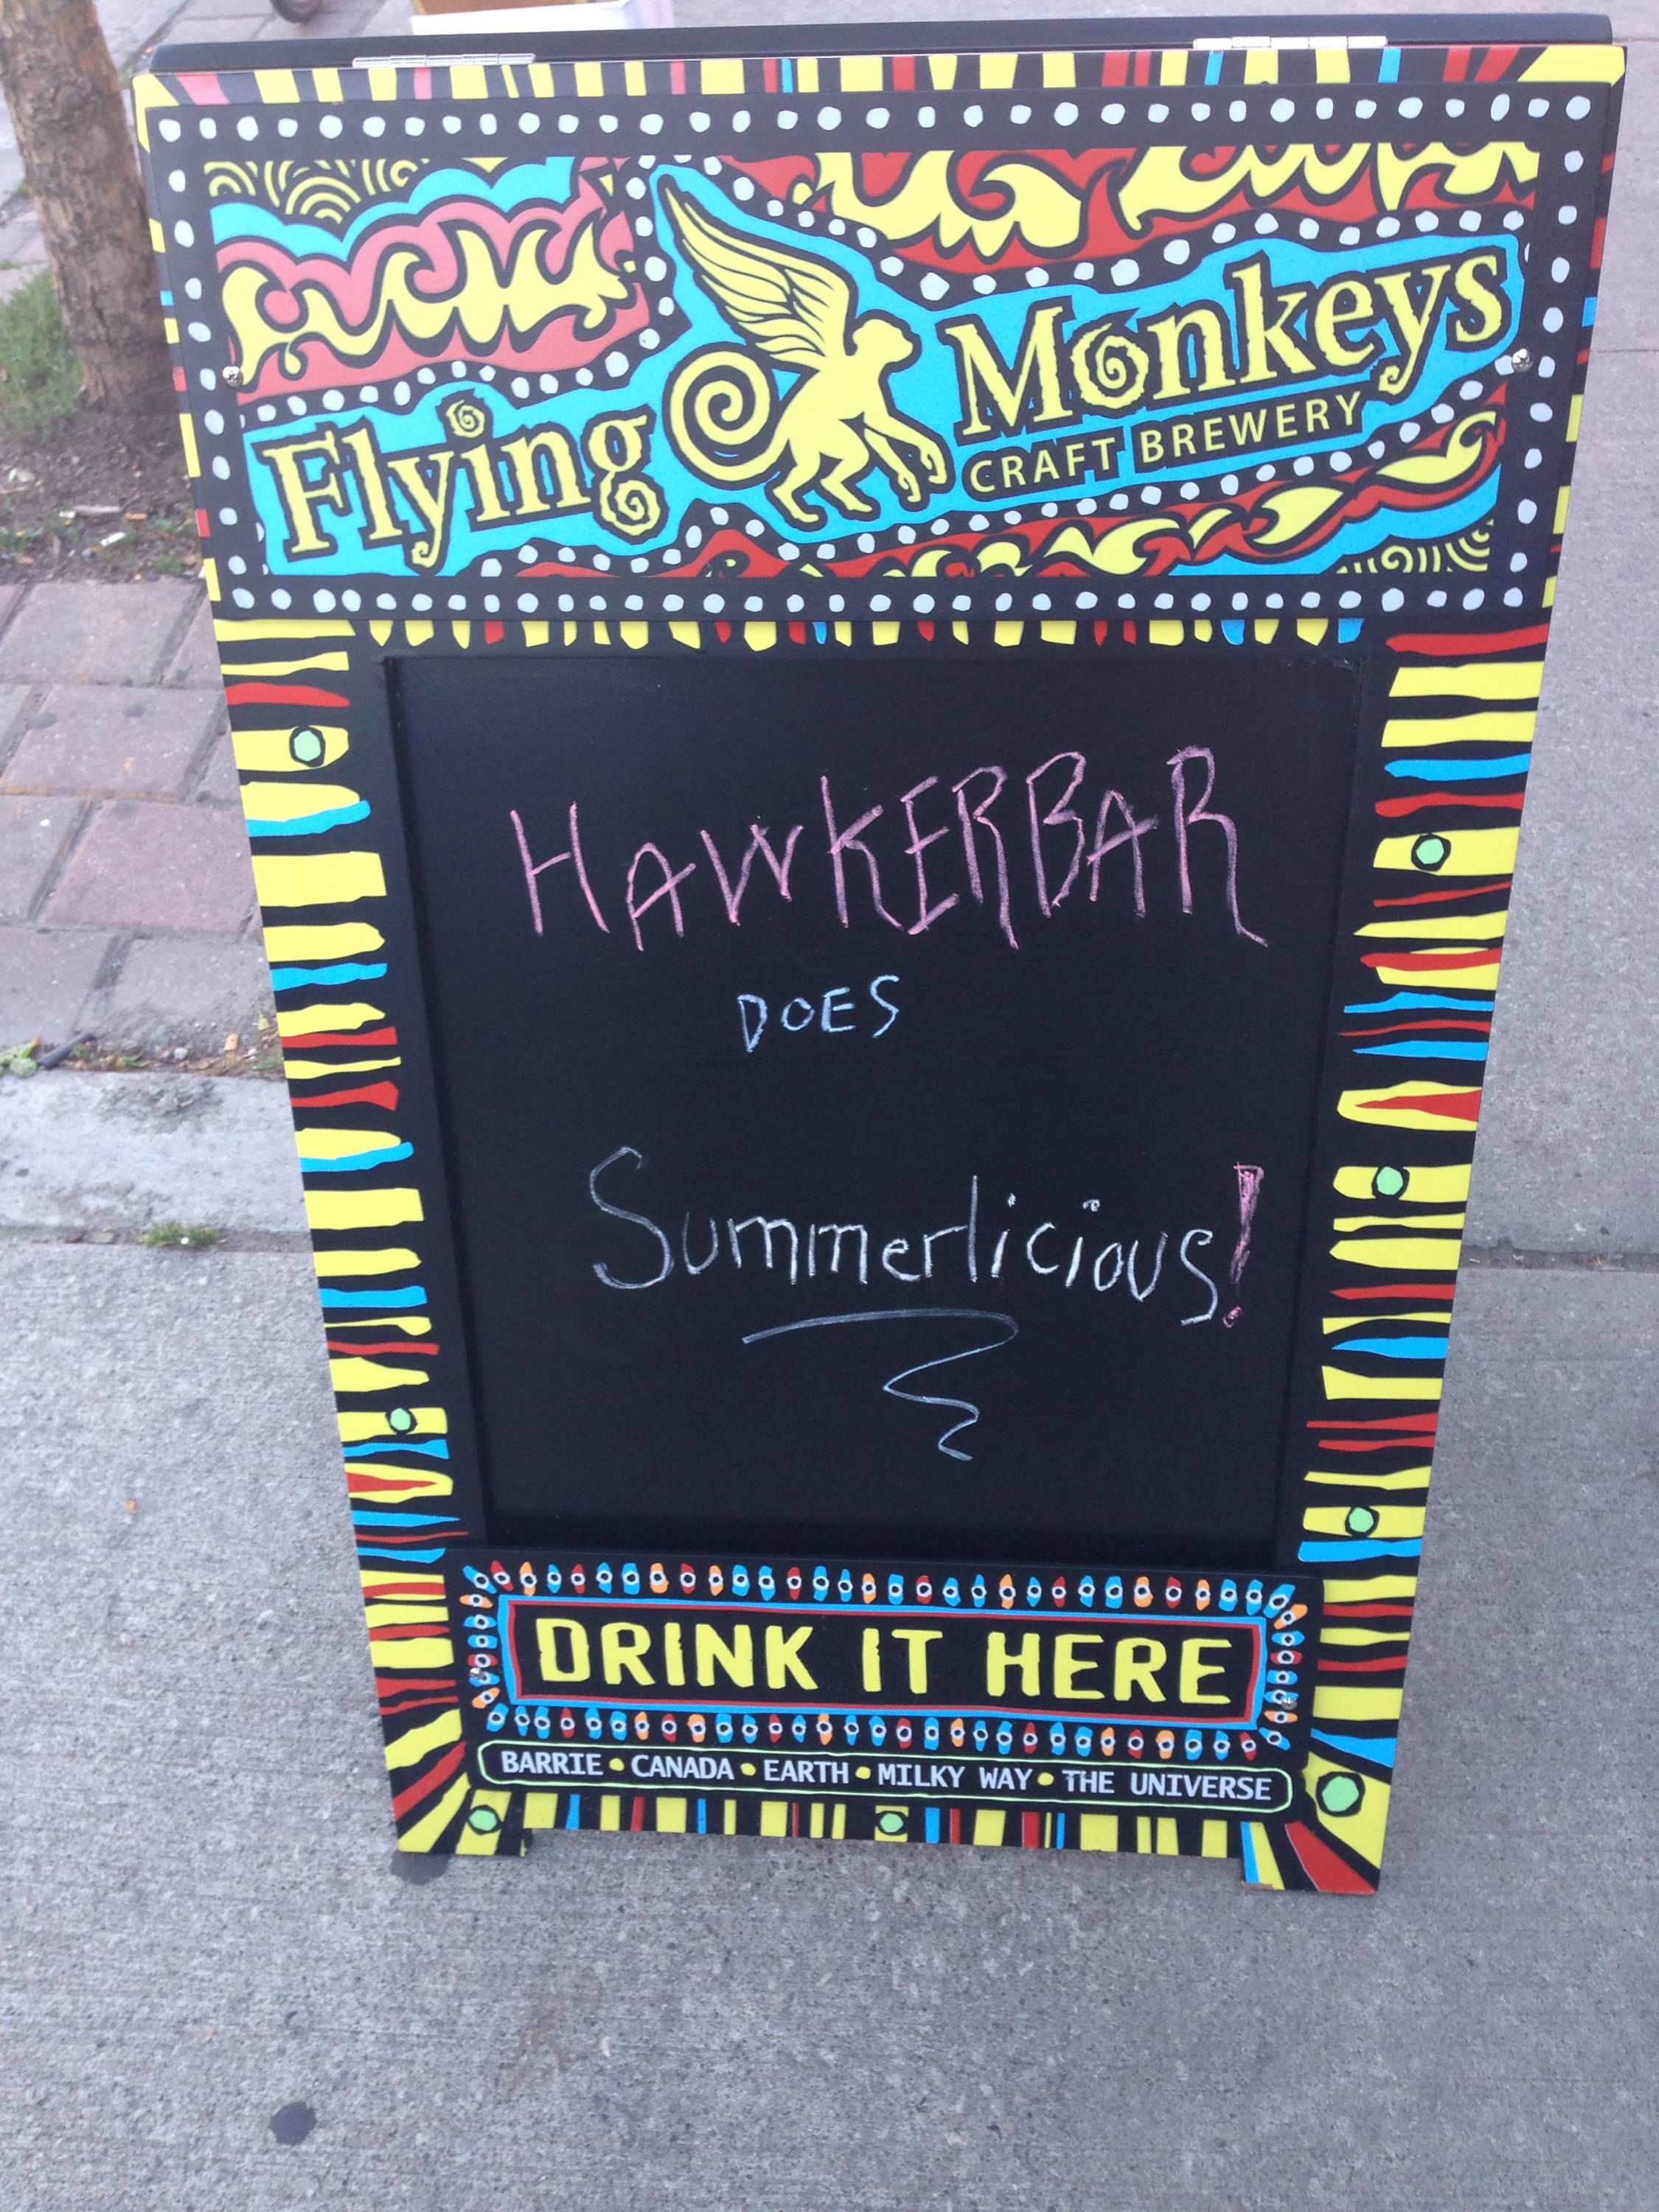 Flying Monkeys
CRAFT BREWERY
HAWKERBAR
DOES
Summerlicious!
DRINK IT HERE
BARRIE • CANADA • EARTH • MILKY WAY • THE UNIVERSE